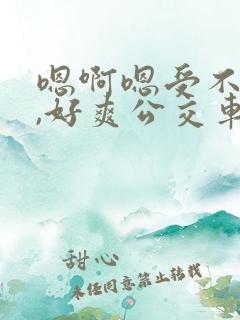 嗯啊嗯受不
,好爽公交车
甜心
未经同意禁止转载